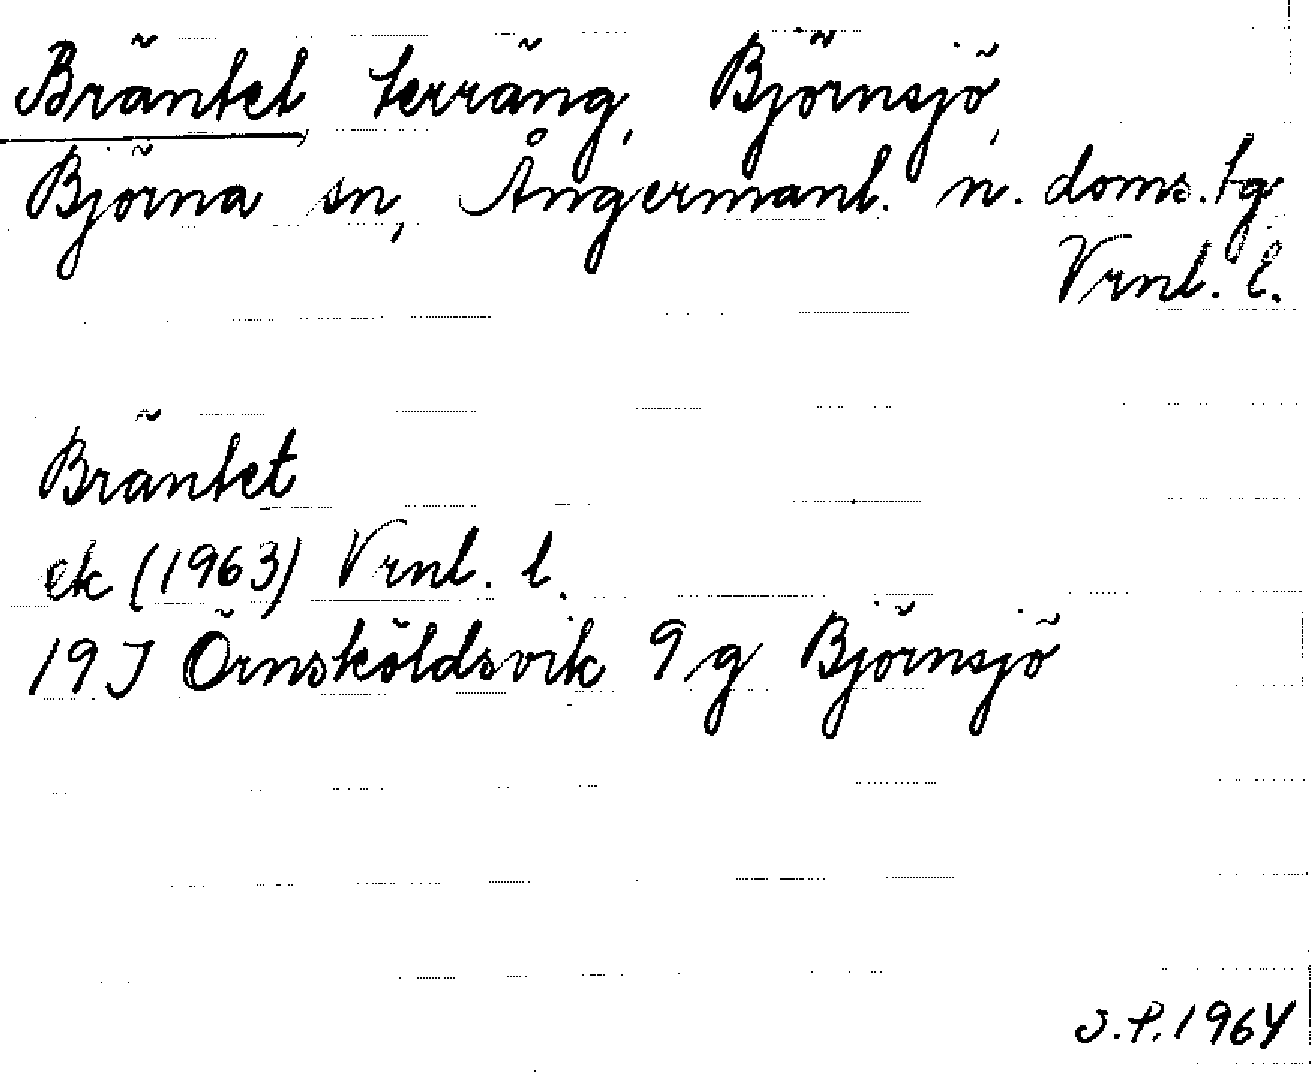 Bräntet, terräng, Björnsjö,
Björna sn, Ångermanl. n. doms.tg
Vrnl. l.
Bräntet
ek (1963) Vrnl. l.
19J Örnsköldsvik 9g Björnsjö
J.P. 1964